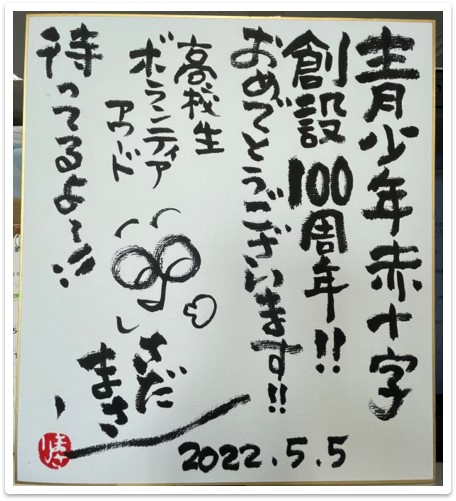 青少年赤十字
創設100周年!!
おめでとうございます!!
高校生
ボランティア
アワード
待ってるよ〜!!
さだ
まさし
2022.5.5